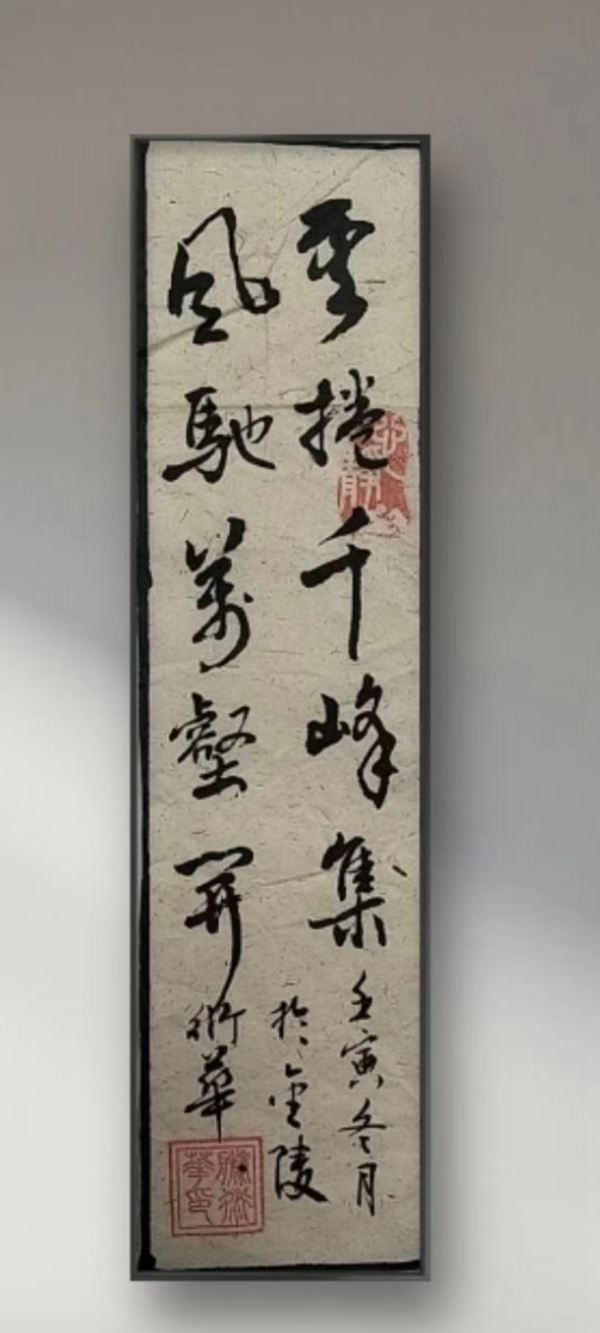 雲捲千峰集
風馳萬壑開
壬寅冬月
於金陵
衍華